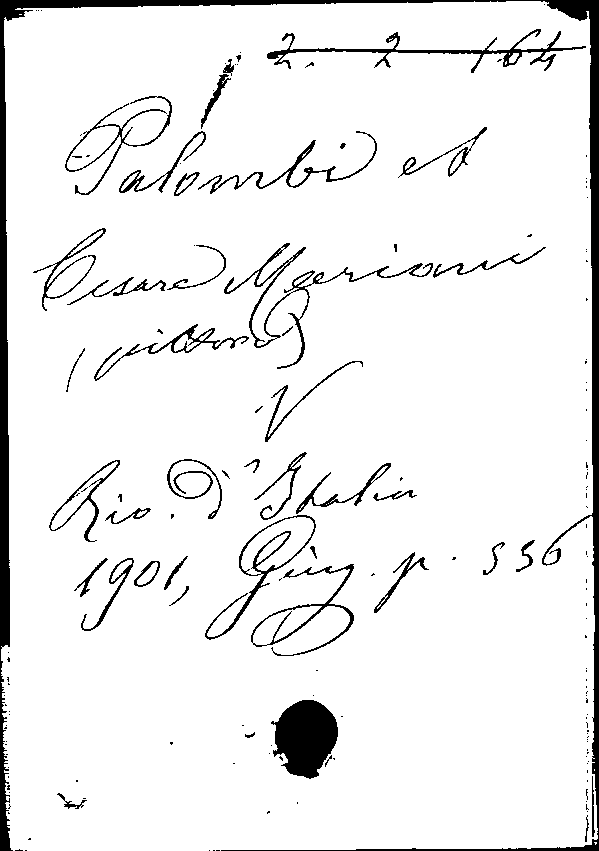 2. 2 164
Palombi et
Cesare Mariani
(pittore)
V
Riv. d'Italia
1901, Giug. p. 336